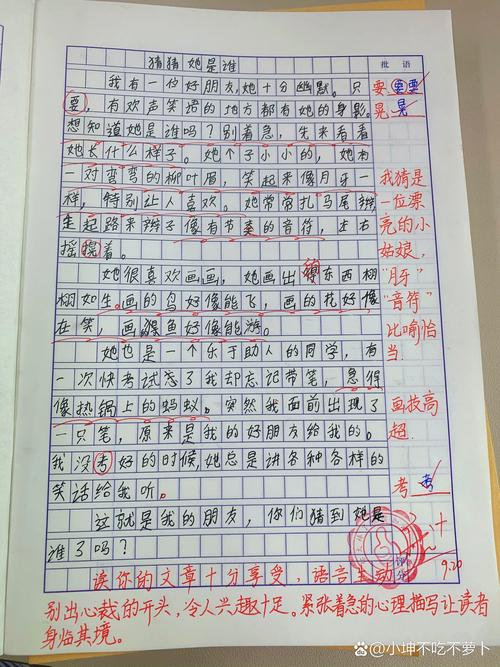 猜猜她是谁
批语
我有一位好朋友,她十分幽默。只
要,有欢声笑语的地方都有她的身影。
想知道她是谁吗?别着急,先来看看
她长什么样子。她个子小小的,她有
一对弯弯的柳叶眉,笑起来像月牙一
样,特别让人喜欢。她常常扎马尾辫,
走起路来辫子像有节奏的音符,左右
摇摆着。
她很喜欢画画,她画出的东西栩
栩如生。画的鸟好像能飞,画的花好像
在笑,画鲜鱼好像能游。
她也是一个乐于助人的同学,有
一次快考试忘了我却忘记带笔,急得
像热锅上的蚂蚁。突然我面前出现了
一只笔,原来是我的好朋友给我的。
我没考好的时候,她总是讲各种各样的
笑话给我听。
这就是我的朋友,你们猜到她是
谁了吗?
要 要要
晃 晃
我猜是
一位漂
亮的小
姑娘,
"月牙"
"音符"
比喻恰
当
画技高
超
考 考
9.20
读你的文章十分享受,语言生动
别出心裁的开头,令人兴趣十足。紧张着急的心理描写让读者
身临其境。
@小坤不吃不萝卜